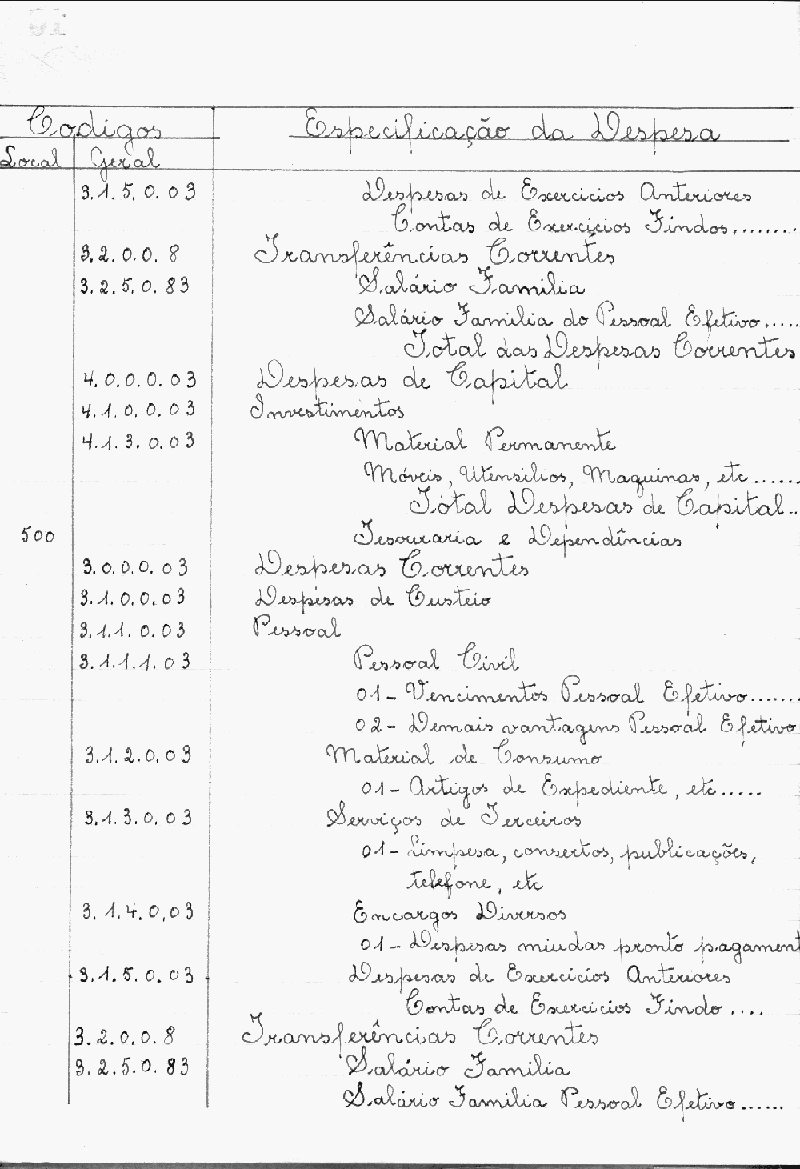 Codigos Especificação da Despesa
Local Geral
3.1.5.0.03 Despesas de Exercicios Anteriores
Contas de Exercicios Findos........
3.2.0.0.8 Transferências Correntes
3.2.5.0.83 Salário Familia
Salário Familia do Pessoal Efetivo.....
Total das Despesas Correntes
4.0.0.0.03 Despesas de Capital
4.1.0.0.03 Investimentos
4.1.3.0.03 Material Permanente
Móveis, Utensilios, Maquinas, etc......
Total Despesas de Capital..
500 Tesouraria e Dependências
3.0.0.0.03 Despesas Correntes
3.1.0.0.03 Despesas de Custeio
3.1.1.0.03 Pessoal
3.1.1.1.03 Pessoal Civil
01- Vencimentos Pessoal Efetivo.......
02- Demais vantagens Pessoal Efetivo
3.1.2.0.03 Material de Consumo
01- Artigos de Expediente, etc.....
3.1.3.0.03 Serviços de Terceiros
01- Limpesa, consertos, publicações,
telefone, etc
3.1.4.0,03 Encargos Diversos
01- Despesas miudas pronto pagament
3.1.5.0.03 Despesas de Exercicios Anteriores
Contas de Exercicios Findo ....
3.2.0.0.8 Transferências Correntes
3.2.5.0.83 Salário Familia
Salário Familia Pessoal Efetivo......